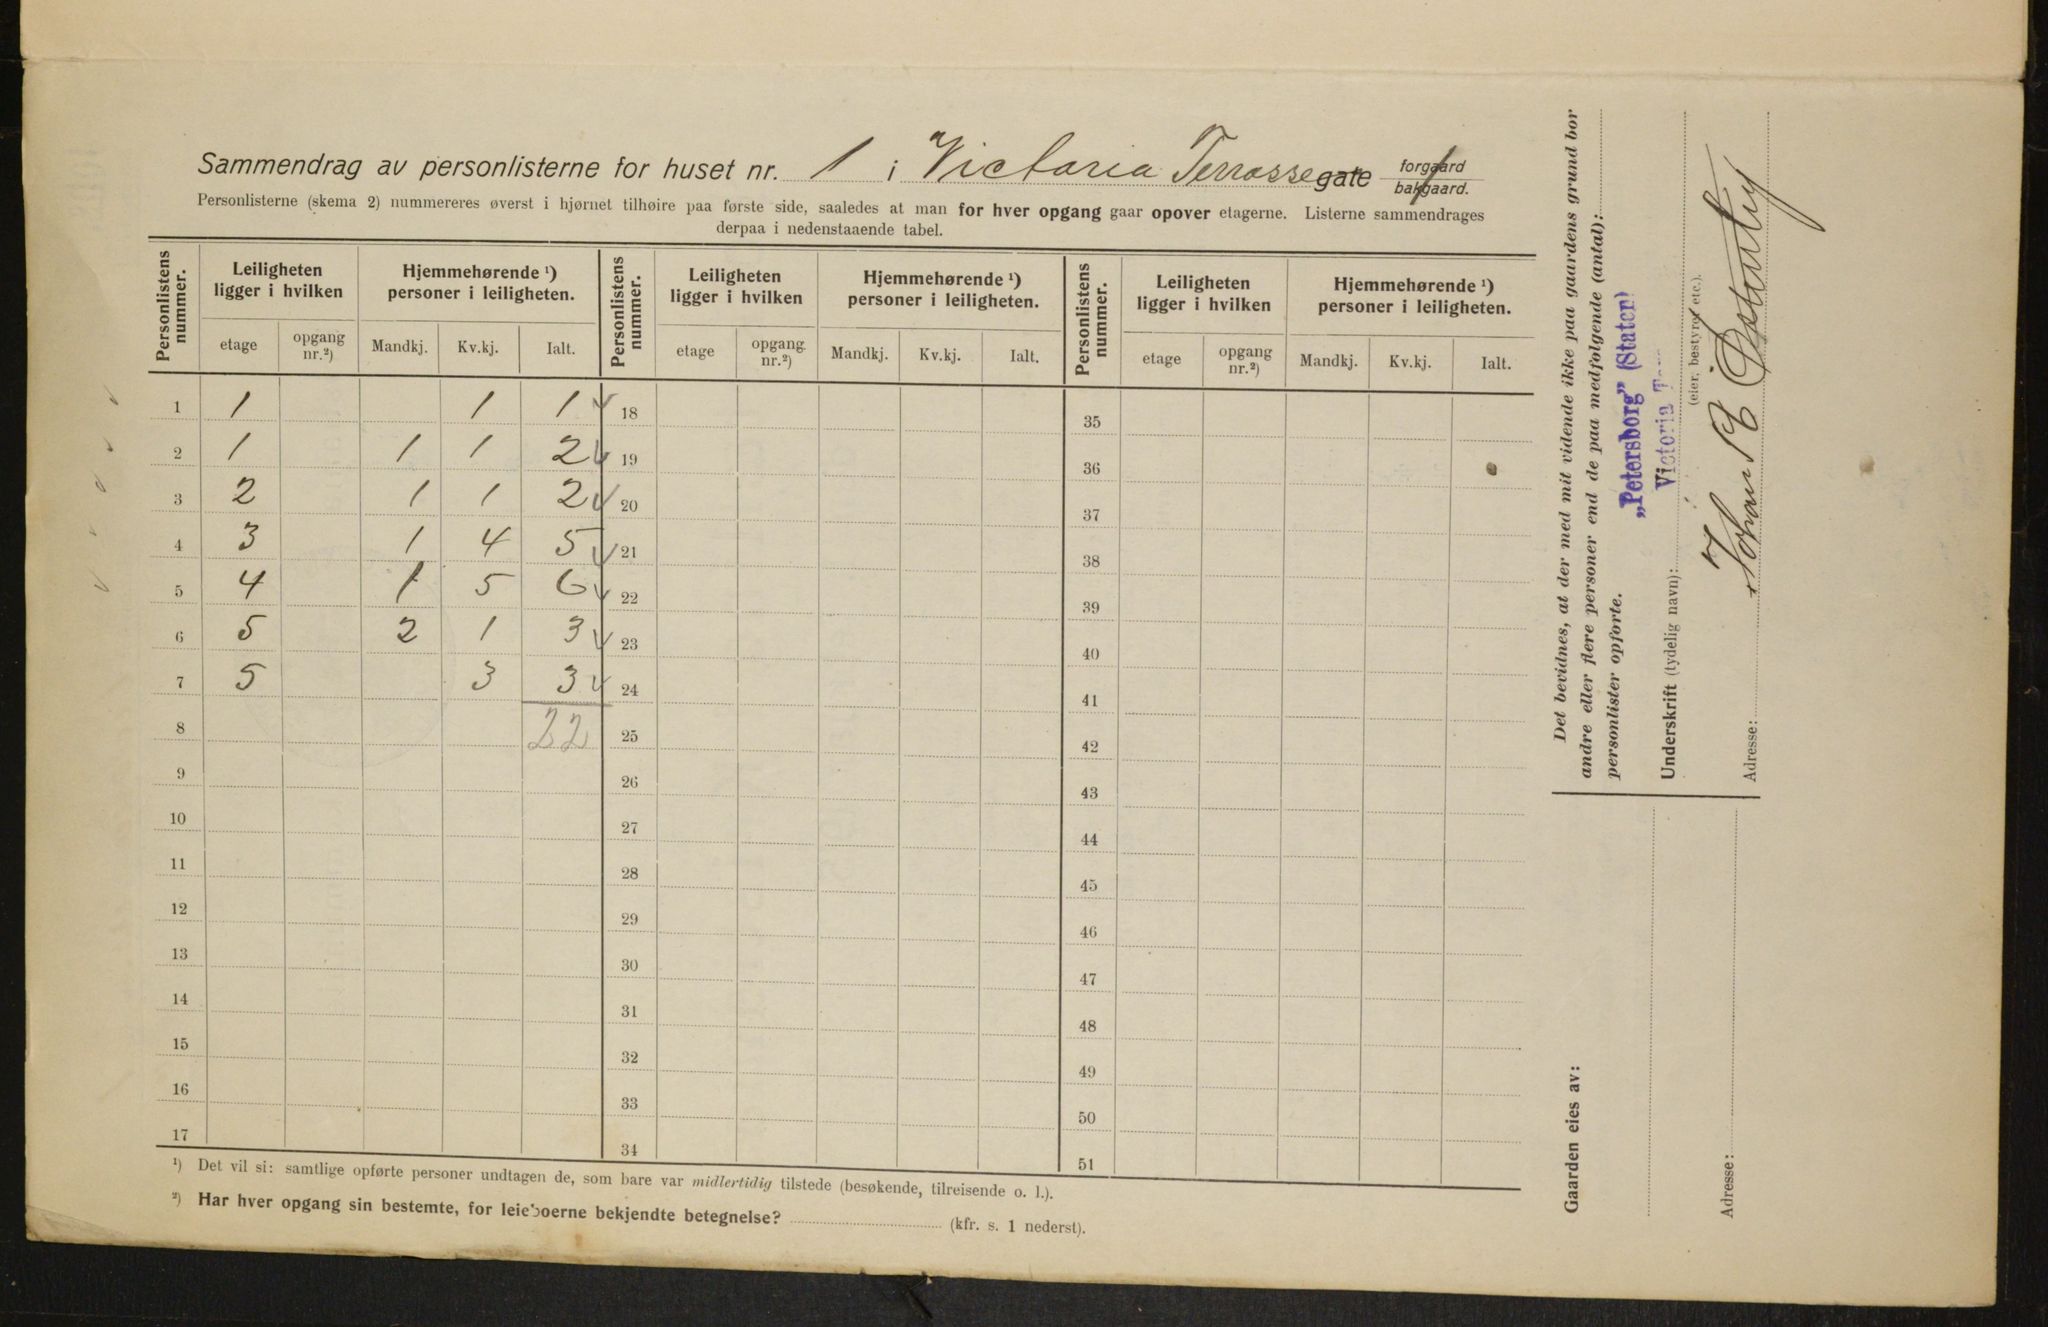 Sammendrag av personlisterne for huset nr. 1 i Victoria Terrasse gate forgaard bakgaard.
Personlisterne (skema 2) nummereres øverst i hjørnet tilhøire paa første side, saaledes at man for hver opgang gaar opover etagerne. Listerne sammendrages
derpaa i nedenstaaende tabel.
Personlistens nummer. Leiligheten ligger i hvilken Hjemmehørende ¹) personer i leiligheten. Personlistens nummer. Leiligheten ligger i hvilken Hjemmehørende ¹) personer i leiligheten. Personlistens nummer. Leiligheten ligger i hvilken Hjemmehørende ¹) personer i leiligheten.
etage opgang nr.²) Mandkj. Kv.kj. Ialt. etage opgang nr.²) Mandkj. Kv.kj. Ialt. etage opgang nr.²) Mandkj. Kv.kj. Ialt.
1 1 1 1 18 35
2 1 1 1 2 19 36
3 2 1 1 2 20 37
4 3 1 4 5 21 38
5 4 1 5 6 22 39
6 5 2 1 3 23 40
7 5 3 3 24 41
8 22 25 42
9 26 43
10 27 44
11 28 45
12 29 46
13 30 47
14 31 48
15 32 49
16 33 50
17 34 51
¹) Det vil si: samtlige opførte personer undtagen de, som bare var midlertidig tilstede (besøkende, tilreisende o. l.).
²) Har hver opgang sin bestemte, for leieboerne bekjendte betegnelse? (kfr. s. 1 nederst).
Det bevidnes, at der med mit vidende ikke paa gaardens grund bor
andre eller flere personer end de paa medfølgende (antal):
personlister opførte.
„Petersborg" (Staten)
Victoria
Underskrift (tydelig navn):
(eier, bestyrer etc.).
Johan
Adresse:
Gaarden eies av:
Adresse: